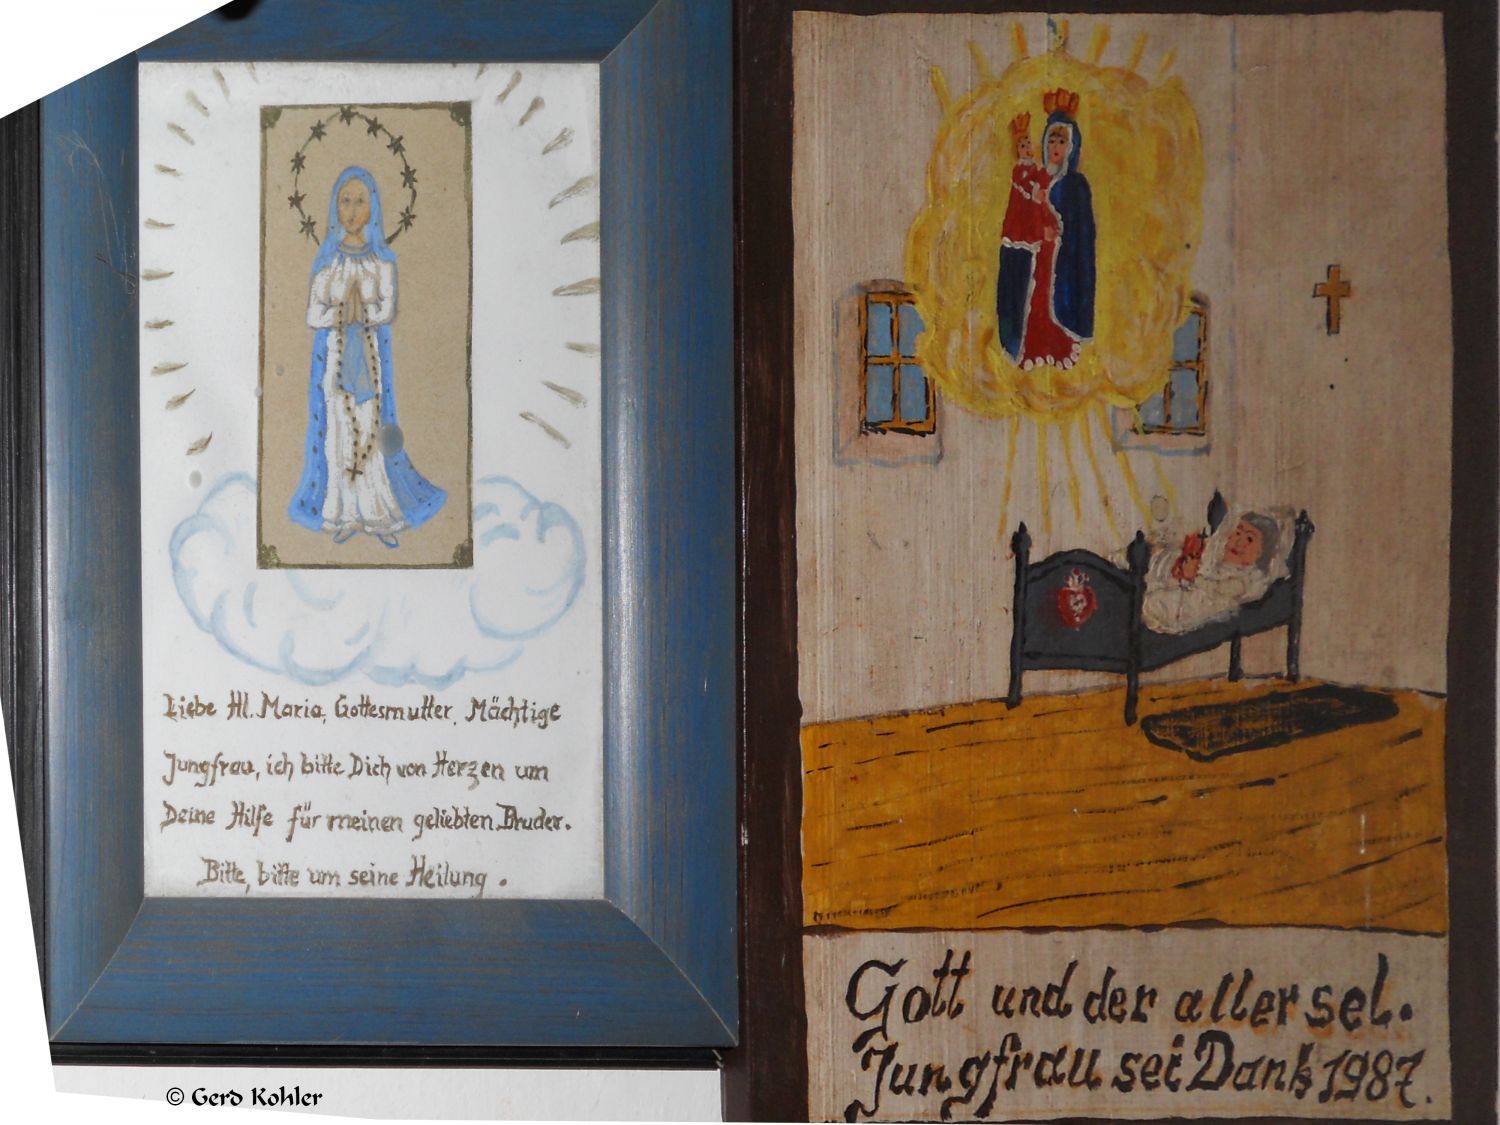 Liebe Hl. Maria, Gottesmutter, Mächtige
Jungfrau, ich bitte Dich von Herzen um
Deine Hilfe für meinen geliebten Bruder.
Bitte, bitte um seine Heilung.
Gott und der allersel.
Jungfrau sei Dank 1987.
© Gerd Kohler